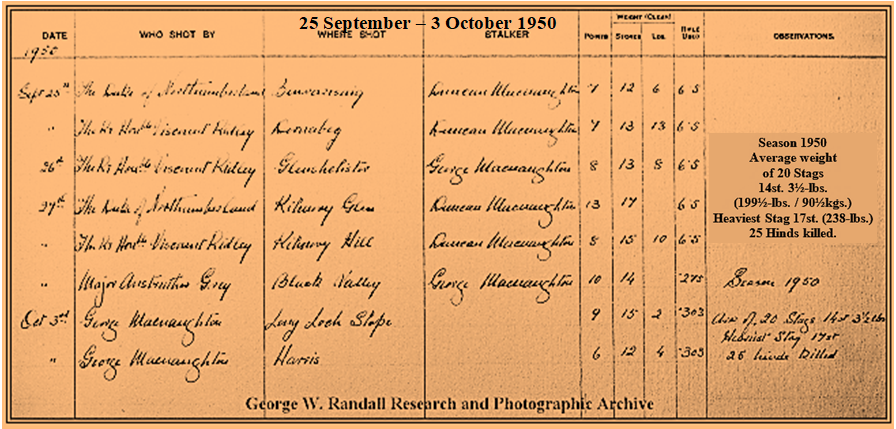 25 September – 3 October 1950
DATE WHO SHOT BY WHERE SHOT STALKER POINTS WEIGHT (CLEAN) STONES LBS. RIFLE USED OBSERVATIONS.
1950
Sept 25th The Duke of Northumberland Duncan Macnaughton 7 12 6 6.5
" The Rt Honble Viscount Ridley Duncan Macnaughton 7 13 13 6.5
26th The Rt Honble Viscount Ridley George Macnaughton 8 13 8 6.5
27th The Duke of Northumberland Kilmory Glen Duncan Macnaughton 13 17 6.5
" The Rt Honble Viscount Ridley Kilmory Hill Duncan Macnaughton 8 15 10 6.5
" Major Grey Black Valley George Macnaughton 10 14 .275 Season 1950
Oct 3rd George Macnaughton Long Loch Slope 9 15 2 .303 Ave of 20 Stags 14st 3½lbs
Heaviest Stag 17st
" George Macnaughton Harris 6 12 4 .303 25 hinds killed
Season 1950
Average weight
of 20 Stags
14st. 3½-lbs.
(199½-lbs. / 90½kgs.)
Heaviest Stag 17st. (238-lbs.)
25 Hinds killed.
George W. Randall Research and Photographic Archive